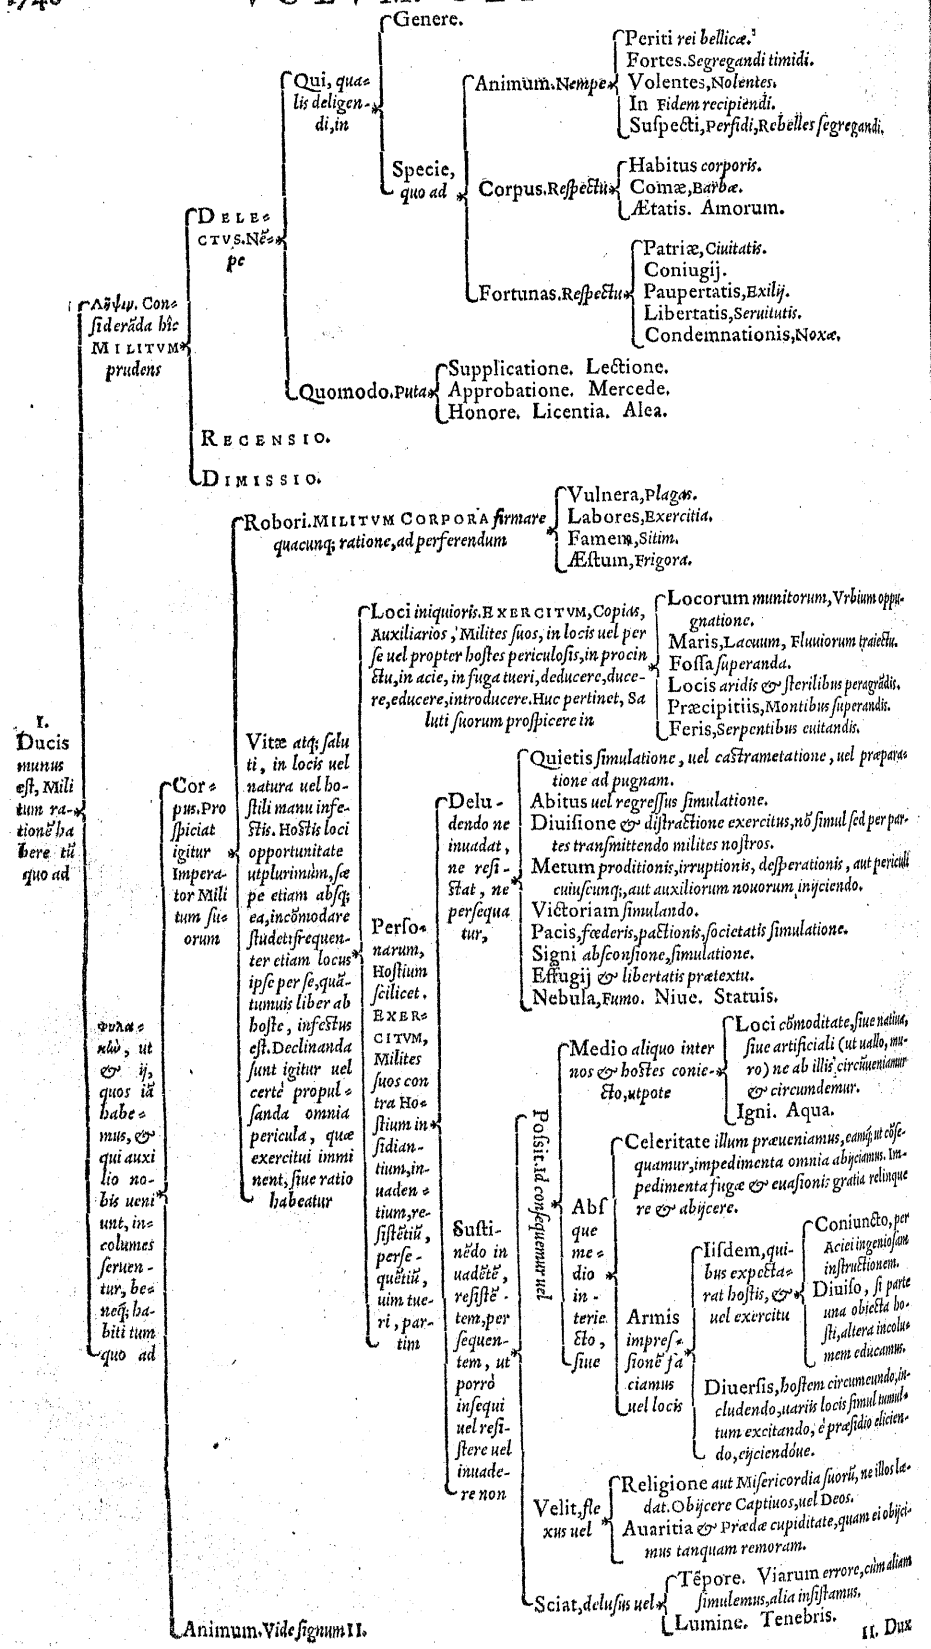 Genere.
Qui, qua-
lis deligen-
di, in
Animum. Nempe
Periti rei bellicæ.
Fortes. Segregandi timidi.
Volentes, Nolentes.
In Fidem recipiendi.
Suſpecti, Perfidi, Rebelles ſegregandi.
Specie,
quo ad
Corpus. Reſpectu
Habitus corporis.
Comæ, Barbæ.
Ætatis. Amorum.
DELE-
CTVS. Nē-
pe
Fortunas. Reſpectu
Patriæ, Ciuitatis.
Coniugij.
Paupertatis, Exilij.
Libertatis, Seruitutis.
Condemnationis, Noxæ.
Con-
ſiderāda hîc
MILITVM
prudens
Quomodo. Puta
Supplicatione. Lectione.
Approbatione. Mercede.
Honore. Licentia. Alea.
RECENSIO.
DIMISSIO.
I.
Ducis
munus
eſt, Mili
tum ra-
tionē ha
bere tū
quo ad
Robori. MILITVM CORPORA firmare
quacunq; ratione, ad perferendum
Vulnera, Plagas.
Labores, Exercitia.
Famem, Sitim.
Æſtum, Frigora.
Cor-
pus. Pro
ſpiciat
igitur
Impera-
tor Mili
tum ſu-
orum
Vitæ atq; ſalu
ti, in locis uel
natura uel ho-
ſtili manu infe-
ſtis. Hoſtis loci
opportunitate
utplurimùm, ſæ
pe etiam abſq;
ea, incōmodare
ſtudet: frequen-
ter etiam locus
ipſe per ſe, quā-
tumuis liber ab
hoſte, infeſtus
eſt. Declinanda
ſunt igitur uel
certè propul-
ſanda omnia
pericula, quæ
exercitui immi
nent, ſiue ratio
habeatur
Loci iniquioris. EXERCITVM, Copias,
Auxiliarios, Milites ſuos, in locis uel per
ſe uel propter hoſtes periculoſis, in procin
ctu, in acie, in fuga tueri, deducere, duce-
re, educere, introducere. Huc pertinet, Sa
luti ſuorum proſpicere in
Locorum munitorum, Vrbium oppu-
gnatione.
Maris, Lacuum, Fluuiorum traiectu.
Foſſa ſuperanda.
Locis aridis & ſterilibus peragrādis.
Præcipitiis, Montibus ſuperandis.
Feris, Serpentibus euitandis.
Perſo-
narum,
Hoſtium
ſcilicet.
EXER-
CITVM,
Milites
ſuos con
tra Ho-
ſtium in
ſidian-
tium, in-
uaden-
tium, re-
ſiſtētiū,
perſe-
quētiū,
uim tue-
ri, par-
tim
Delu-
dendo ne
inuadat,
ne reſi-
ſtat, ne
perſequa
tur,
Quietis ſimulatione, uel caſtrametatione, uel præpara-
tione ad pugnam.
Abitus uel regreſſus ſimulatione.
Diuiſione & diſtractione exercitus, nō ſimul ſed per par-
tes tranſmittendo milites noſtros.
Metum proditionis, irruptionis, deſperationis, aut periculi
cuiuſcunq;, aut auxiliorum nouorum inijciendo.
Victoriam ſimulando.
Pacis, fœderis, pactionis, ſocietatis ſimulatione.
Signi abſconſione, ſimulatione.
Effugij & libertatis prætextu.
Nebula, Fumo. Niue. Statuis.
Suſti-
nēdo in
uadētē,
reſiſtē-
tem, per
ſequen-
tem, ut
porrò
inſequi
uel reſi-
ſtere uel
inuade-
re non
Poſsit. Id conſequemur uel
Medio aliquo inter
nos & hoſtes conie-
cto, utpote
Loci cōmoditate, ſiue natiua,
ſiue artificiali (ut uallo, mu-
ro) ne ab illis circūueniamur
& circundemur.
Igni. Aqua.
Abſ
que
me-
dio
in-
terie
cto,
ſiue
Celeritate illum præueniamus, eamq; ut cōſe-
quamur, impedimenta omnia abijciamus. Im-
pedimenta fugæ & euaſionis gratia relinque
re & abijcere.
Armis
impreſ-
ſionē fa
ciamus
uel locis
Iiſdem, qui-
bus expecta-
rat hoſtis, &
uel exercitu
Coniuncto, per
Aciei ingenioſam
inſtructionem.
Diuiſo, ſi parte
una obiecta ho-
ſti, altera incolu-
mem educamus.
Diuerſis, hoſtem circumeundo, in-
cludendo, uariis locis ſimul tumul-
tum excitando, è præſidio elicien-
do, eijciendóue.
Velit, fle
xus uel
Religione aut Miſericordia ſuorū, ne illos læ-
dat. Obijcere Captiuos, uel Deos.
Auaritia & Prædæ cupiditate, quam ei obijci-
mus tanquam remoram.
Sciat, deluſus uel
Tēpore. Viarum errore, cùm aliam
ſimulemus, alia inſiſtamus.
Lumine. Tenebris.
ut
& ij,
quos iā
habe-
mus, &
qui auxi
lio no-
bis ueni
unt, in-
columes
ſeruen-
tur, be-
neq; ha-
biti tum
quo ad
Animum. Vide ſignum II.
II. Dux